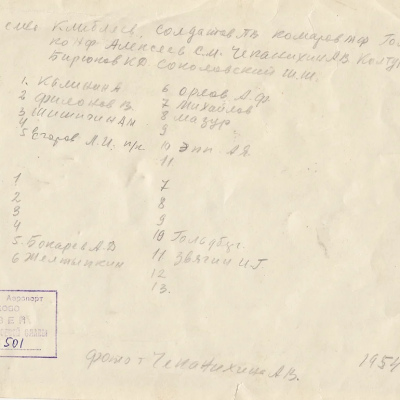 Кулибяев, Солдатов ПВ Комаров НФ Гол
ко НФ Алексеев С.М. Чеканихин АВ Колту
Бирюков КД Соколовский И.Ш.
1. Калинин А
2 Филонов В.
3 Шишигин АМ
4
5 Егоров Л.И. п/к
6 Орлов А.Ф.
7 Михайлов
8 Мазур
9
10 Эпп АЯ
11
1
2
3
4
5. Бокарев А.Д
6 Желтыпкин
7
8
9
10 Гольдбус
11 Звягин И.Г
12
13.
Аэропорт
501
фото т Чеканихина АВ.
1954